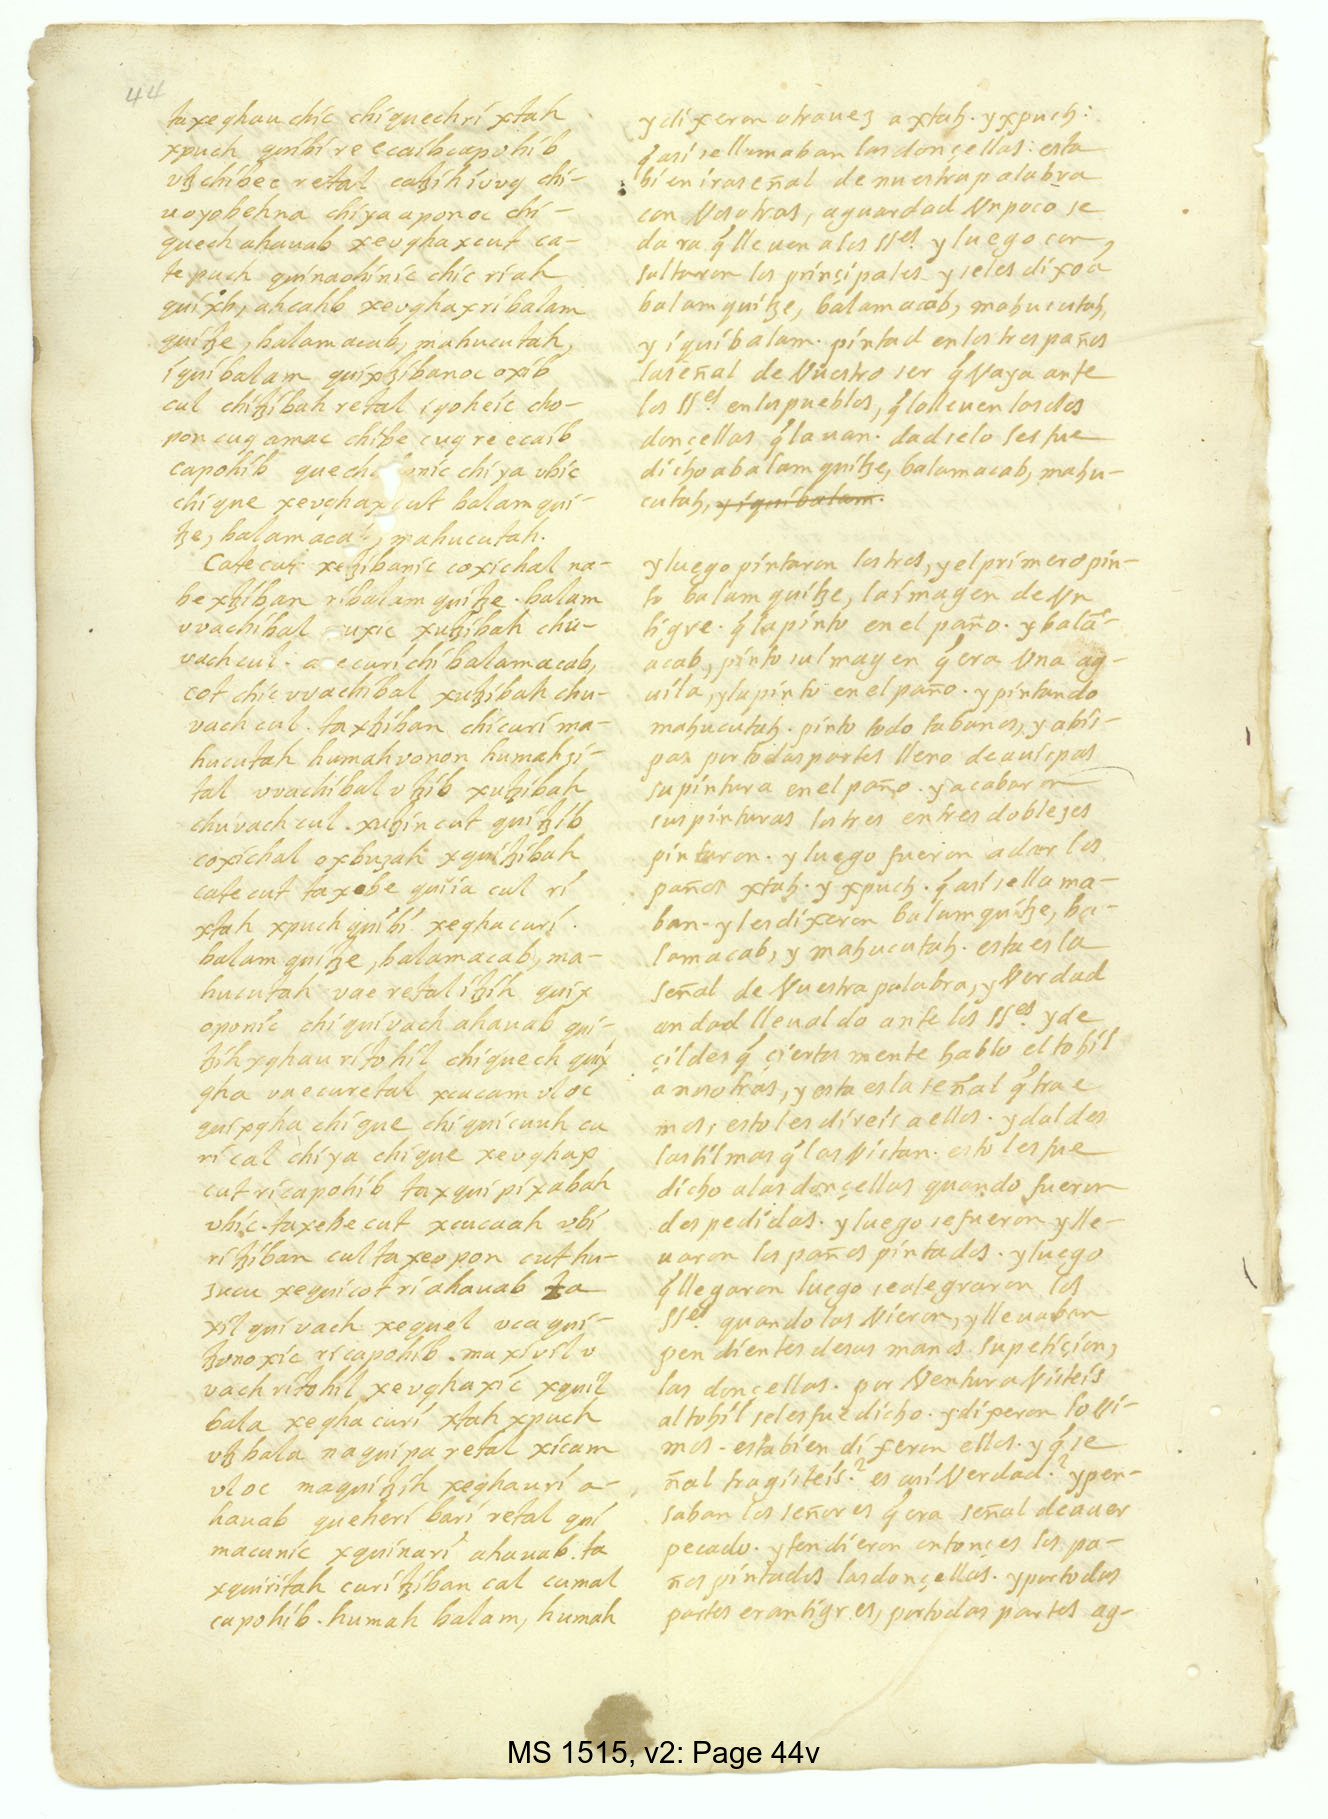 44
taxeghau chic chiquech ri xtah
xpuch quibi re ecaib capohib
utz chibec retal catzih iuug chi-
uoyobehna chiya aponoc chi-
quech ahauab xeughax cut ca-
te puch quinaohinic chic ri ah
quixb, ahcahb xeughax ri balam
quitze, balamacab, mahucutah,
iquibalam quixtzibanoc oxib
cul chitzibah retal iqoheic cho-
pon cug amac chibe cug re ecaib
capohib quech onic chiya ubic
chique xeughax cut balam qui-
tze, balamaca , mahucutah.
Cate cut xetzibanic coxichal na-
be xtziban ri balam quitze. balam
uvachibal uxic xutzibah chu-
vach cul. a e curi chi balamacab,
cot chic uvachibal xutzibah chu-
vach cul. ta xtziban chicuri ma-
hucutah humah vonon humah zi-
tal uvachibal utzib xutzibah
chuvach cul. xutzin cut quitzib
coxichal oxbuzah xquitzibah
cate cut ta xebe quiia cul ri
xtah xpuch quibi xegha curi.
balam quitze, balamacab, ma-
hucutah vae retal itzih quix
oponic chiquivach ahauab qui-
tzih xghau ri tohil chiquech quix
gha vae cu retal xcacam uloc
quixgha chique chiquicuuh cu
ri cal chiya chique xeughax
cut ri capohib ta xquipixabah
ubic. ta xebe cut xcucaah ubi
ri tziban cul ta xeopon cut hu-
zucu xequicot ri ahauab ta
xil quivach xequel uca qui-
tzonoxic ri capohib. ma xivil u
vach ri tohil xeughaxic xquil
bala xegha curi xtah xpuch
utz bala naquipa retal xicam
uloc maquitzih xeghauri a-
hauab queheri bari retal qui
macunic xquinari ahauab. ta
xquiritah curi tziban cal cumal
capohib. humah balam, humah
y dixeron otrauez a xtah. y xpuch:
q̃ asi se llamaban las donçellas: esta
bien iraseñal de nuestra palabra
con Vosotras, aguardad Vn poco se
dara q̃ lleuen a los ss.es y luego con
sultaron los prinçipales y seles dixo a
balamquitze, balamacab, mahucutah,
y iquibalam. pintad en los tres paños
laseñal de Nuestro ser q̃ Vaya ante
los ss.es en los pueblos, q̃ lo lleuen las dos
doncellas q̃ la uan. dadselo les fue
dicho a balamquitze, balamacab, mahu-
cutah, y iquibalam.
y luego pintaron los tres, y el primero pin-
to balamquitze, la imagen de Vn
tigre. q̃ la pinto en el paño. y balã-
acab, pinto su Imagen q̃ era Vna ag-
uila, y la pinto en el paño. y pintando
mahucutah. pinto todo tabanos, y abis-
pas por todas partes lleno de auispas
su pintura en el paño. y acabaron
sus pinturas los tres en tres doblezes
pintaron. y luego fueron a dar los
paños xtah. y xpuch. q̃ asi se llama-
ban. y les dixeron balamquitze, ba-
lamacab, y mahucutah. esta es la
señal de Vuestra palabra, y Verdad
andad lleualdo ante los ss.es y de
çildes q̃ çiertamente hablo el tohil
a nosotras, y esta es la señal q̃ trae
mos, esto les direis a ellos. y daldes
las tilmas q̃ las Vistan. esto les fue
dicho a las donçellas quando fueron
despedidas. y luego se fueron y lle-
uaron los paños pintados. y luego
q̃ llegaron luego se alegraron los
ss.es quando las Vieron, y lleuaban
pendientes de sus manos su petiçion,
las donçellas. por Ventura Visteis
al tohil se les fue dicho. y dixeron lo Vi-
mos. esta bien dixeron ellos. y q̃ se
ñal tragisteis.? es asi Verdad.? y pen-
saban los señores q̃ era señal de auer
pecado. y tendieron entonçes los pa-
ños pintados las donçellas. y por todas
partes eran tigres, por todas partes ag-
MS 1515, v2: Page 44v